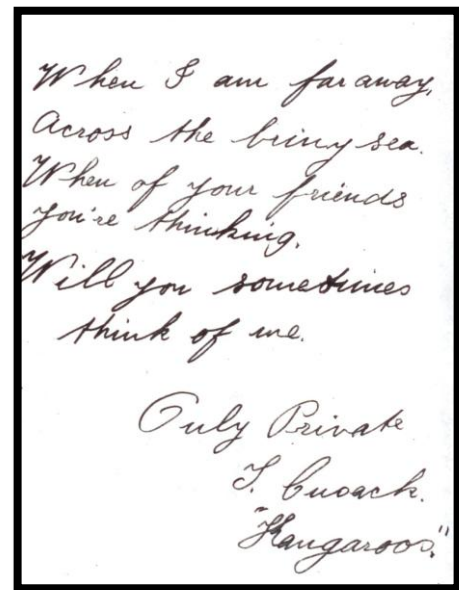 When I am far away,
Across the briny sea.
When of your friends
you're thinking.
Will you sometimes
think of me.
Only Private
T. Cusack.
"Kangaroos."